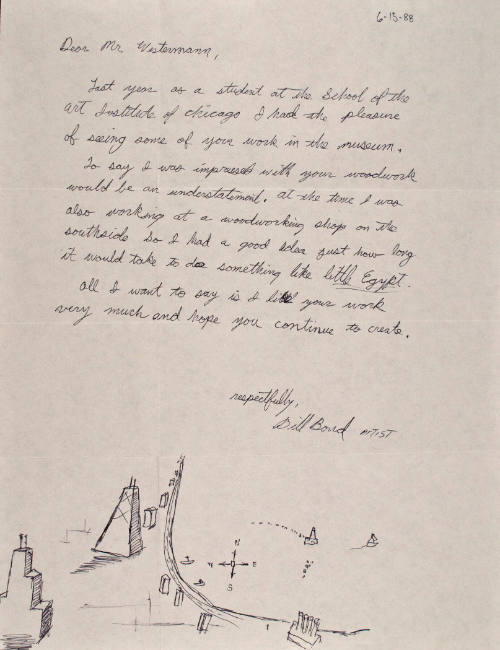 6-15-88
Dear Mr. Westermann,
Last year as a student at the School of the
Art Institute of Chicago I had the pleasure
of seeing some of your work in the museum.
To say I was impressed with your woodwork
would be an understatement. At the time I was
also working at a woodworking shop on the
southside so I had a good idea just how long
it would take to do something like little Egypt.
All I want to say is I like your work
very much and hope you continue to create.
respectfully,
Bill Bond ARTIST
N
W E
S